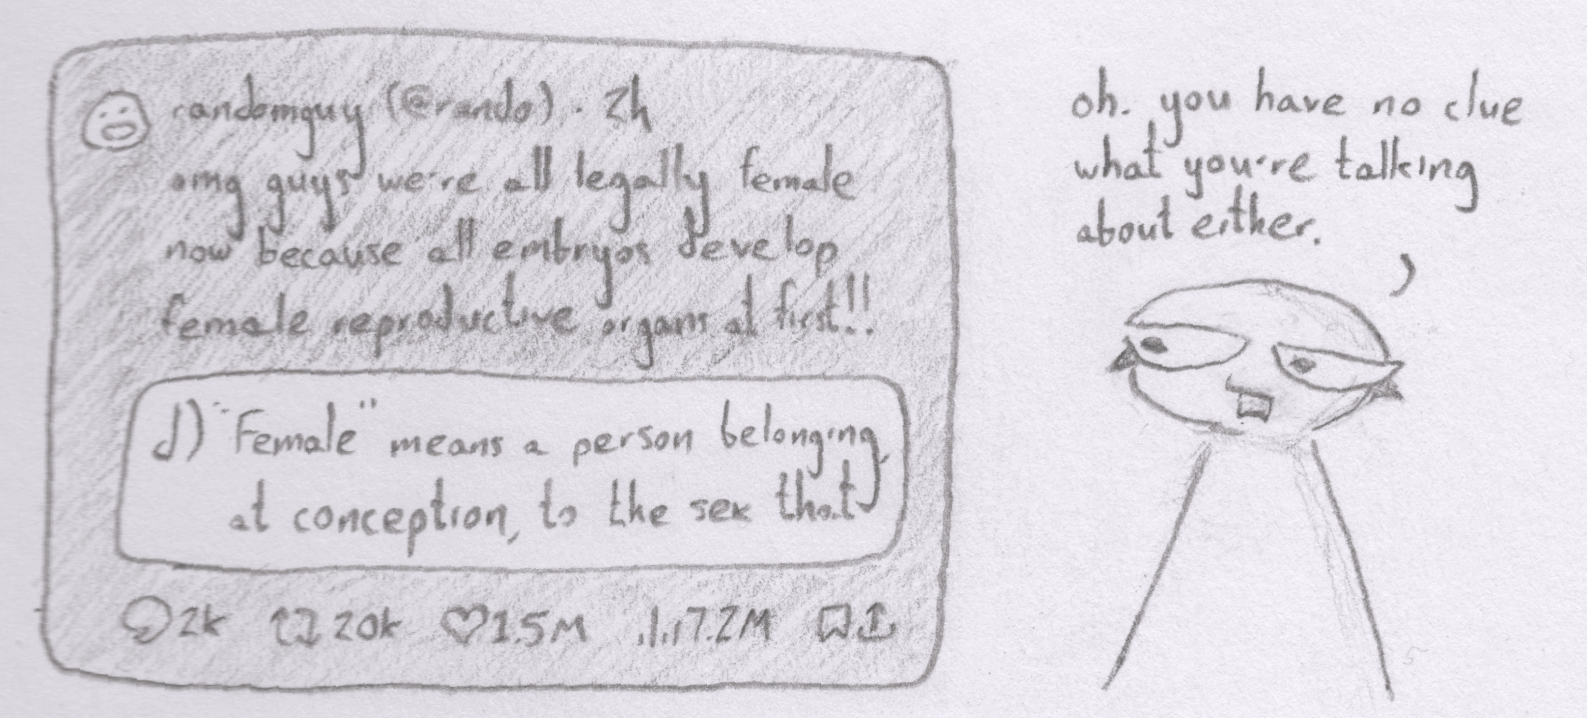 randomguy (@rando) · 2h
omg guys we're all legally female
now because all embryos develop
female reproductive organs at first!!
d) "Female" means a person belonging,
at conception, to the sex that
2k 20k 1.5M 17.2M
oh. you have no clue
what you're talking
about either.